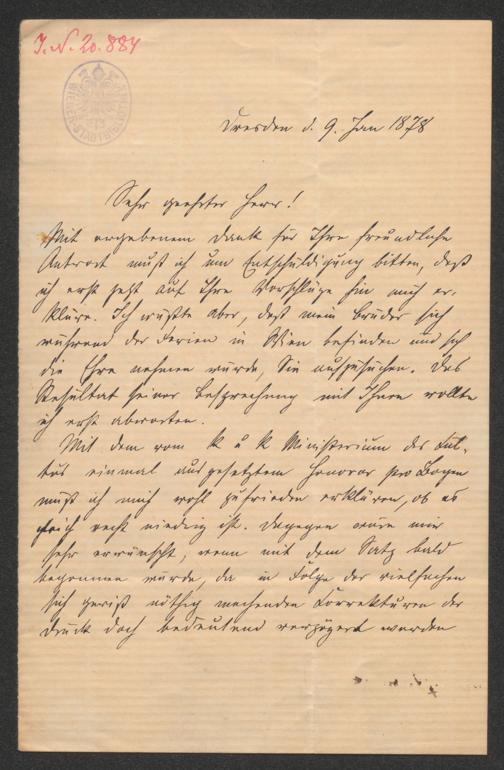 I. N. 20.884
Dresden d. 9. Jan 1878
Sehr geehrter Herr!
Mit ergebenem Dank für Ihre freundliche
Antwort muß ich um Entschuldigung bitten, daß
ich erst jetzt auf Ihre Vorschläge hin mich er-
kläre. Ich wußte aber, daß mein Bruder sich
während der Ferien in Wien befinden und sich
die Ehre nehmen würde, Sie aufzusuchen. Das
Resultat seiner Besprechung mit Ihnen wollte
ich erst abwarten.
Mit dem vom k u k Ministerium des Cul-
tus einmal ausgesetztem Honorar pro Bogen
muß ich mich wohl zufrieden erklären, ob es
recht niedrig ist. Dagegen wäre mir
sehr erwünscht, wenn mit dem Satz bald
begonnen würde, da in Folge der vielfachen
sich gewiß nöthig machenden Correkturen der
Druck doch bedeutend verzögert werden